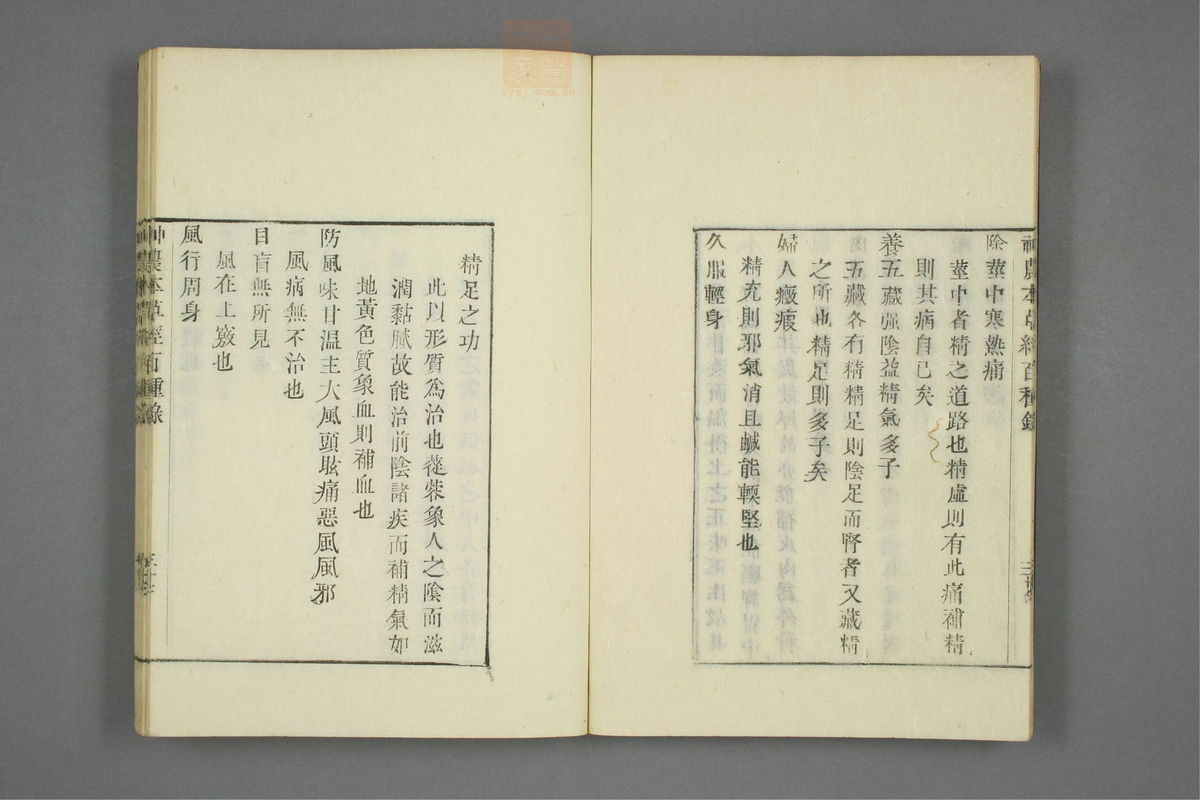 神農本草經百種錄
陰莖中寒熱痛
莖中者精之道路也精虛則有此痛補精
則其病自已矣
養五藏强陰益精氣多子
五藏各有精精足則陰足而腎者又藏精
之所也精足則多子矣
婦人癥瘕
精充則邪氣消且鹹能輭堅也
久服輕身
精足之功
此以形質為治也蓯蓉象人之陰而滋
潤黏膩故能治前陰諸疾而補精氣如
地黃色質象血則補血也
防風味甘溫主大風頭眩痛惡風風邪
風病無不治也
目盲無所見
風在上竅也
風行周身
神農本草經百種錄
zysj.com.cn